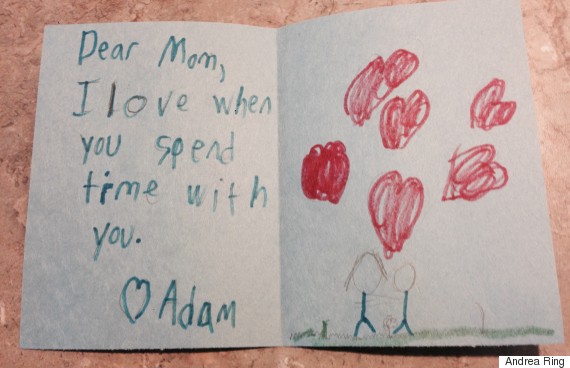 Dear Mom,
I love when
you spend
time with
you.
♡ Adam
Andrea Ring